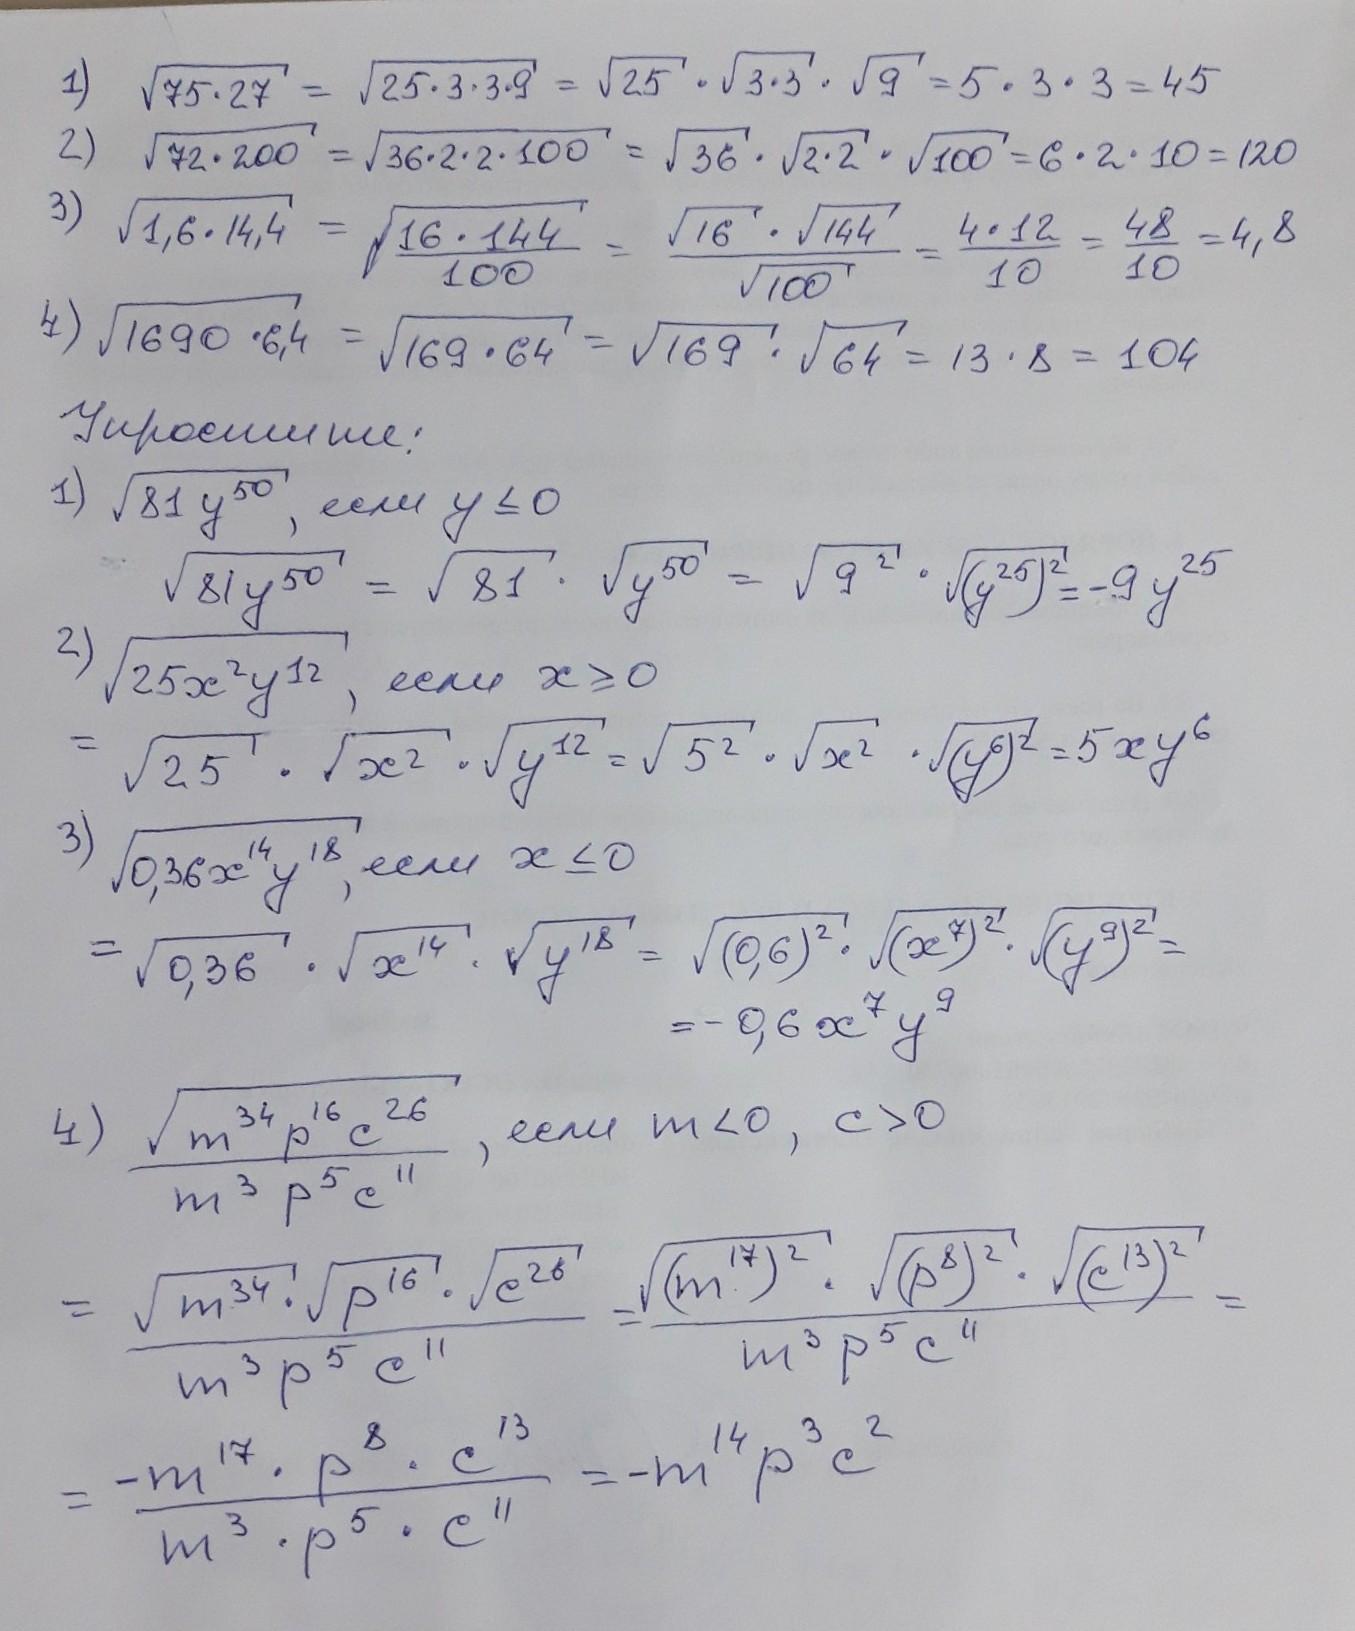 1) √75·27 = √25·3·3·9 = √25 · √3·3 · √9 = 5 · 3 · 3 = 45
2) √72·200 = √36·2·2·100 = √36 · √2·2 · √100 = 6 · 2 · 10 = 120
3) √1,6·14,4 = √16·144/100 = √16 · √144/√100 = 4·12/10 = 48/10 = 4,8
4) √1690·6,4 = √169·64 = √169 · √64 = 13 · 8 = 104
Упростите:
1) √81y⁵⁰, если y ≤ 0
√81y⁵⁰ = √81 · √y⁵⁰ = √9² · √(y²⁵)² = -9y²⁵
2) √25x²y¹², если x ≥ 0
= √25 · √x² · √y¹² = √5² · √x² · √(y⁶)² = 5xy⁶
3) √0,36x¹⁴y¹⁸, если x ≤ 0
= √0,36 · √x¹⁴ · √y¹⁸ = √(0,6)² · √(x⁷)² · √(y⁹)² =
= -0,6x⁷y⁹
4) √m³⁴p¹⁶c²⁶/m³p⁵c¹¹, если m < 0, c > 0
= √m³⁴ · √p¹⁶ · √c²⁶/m³p⁵c¹¹ = √(m¹⁷)² · √(p⁸)² · √(c¹³)²/m³p⁵c¹¹ =
= -m¹⁷ · p⁸ · c¹³/m³ · p⁵ · c¹¹ = -m¹⁴p³c²